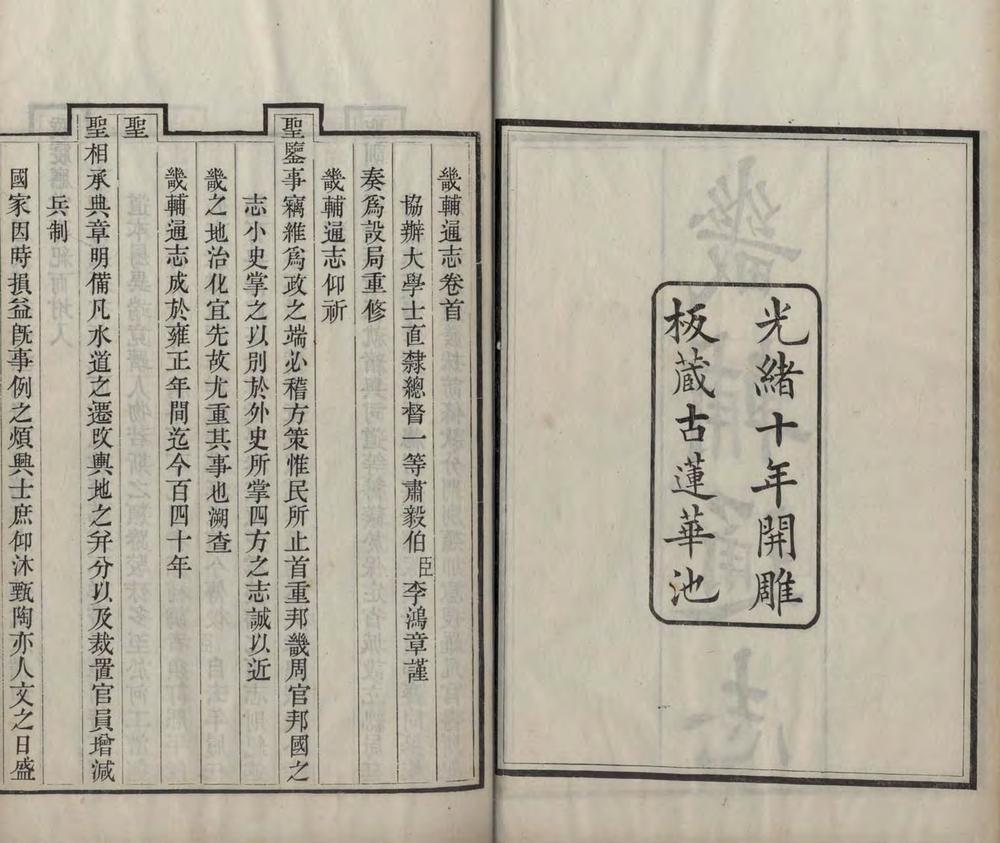 光緒十年開雕
板蔵古蓮華池
畿輔通志卷首
協辦大學士直隸總督一等肅毅伯臣李鴻章謹
奏爲設局重修
畿輔通志仰祈
聖鑒事竊維爲政之端必稽方策惟民所止首重邦畿周官邦國之
志小史掌之以別於外史所掌四方之志誠以近
畿之地治化宜先故尤重其事也溯查
畿輔通志成於雍正年間迄今百四十年
聖
聖相承典章明備凡水道之遷改輿地之分以及裁置官員增減
兵制
國家因時損益旣事例之煩興士庶仰沐甄陶亦人文之日盛